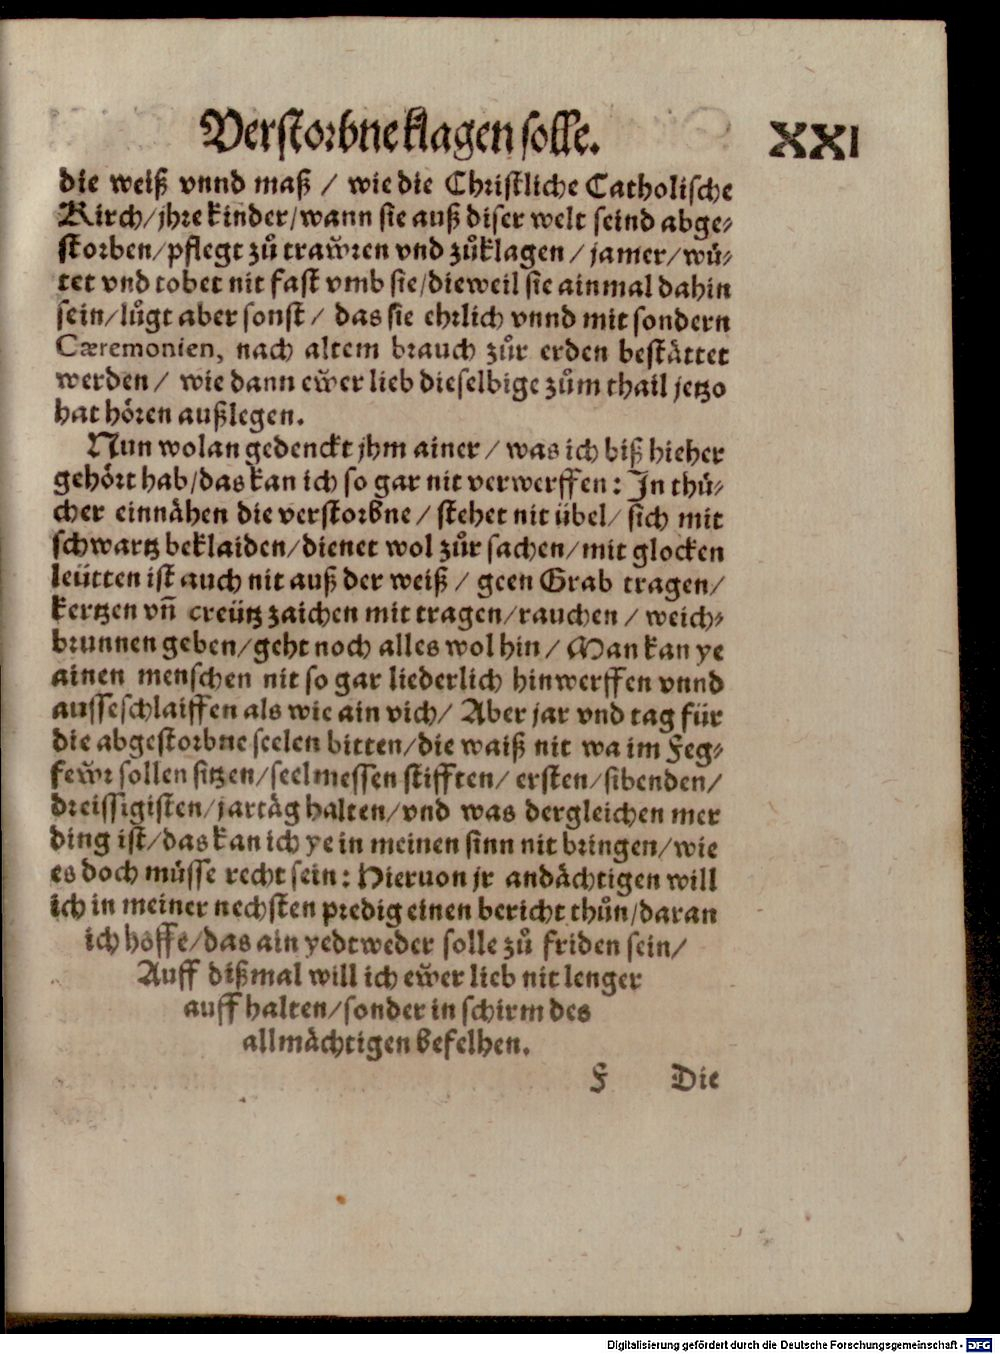 Verstorbne klagen solle. XXI
die weiß vnnd maß / wie die Christliche Catholische
Kirch/jhre kinder/wann sie auß diser welt seind abge-
storben/pflegt zů traw̃ren vnd zůklagen / jamer/wü-
tet vnd tobet nit fast vmb sie/dieweil sie ainmal dahin
sein/lůgt aber sonst / das sie ehrlich vnnd mit sondern
Cæremonien, nach altem brauch zůr erden bestättet
werden / wie dann ew̃er lieb dieselbige zům thail jetzo
hat hören außlegen.
Nun wolan gedenckt jhm ainer / was ich biß hieher
gehört hab/das kan ich so gar nit verwerffen: In thü-
cher einnähen die verstorbne / stehet nit übel/ sich mit
schwartz beklaiden/dienet wol zůr sachen/mit glocken
leütten ist auch nit auß der weiß / geen Grab tragen/
kertzen vñ creütz zaichen mit tragen/rauchen / weich-
brunnen geben/geht noch alles wol hin / Man kan ye
ainen menschen nit so gar liederlich hinwerffen vnnd
ausseschlaiffen als wie ain vich/ Aber jar vnd tag für
die abgestorbne seelen bitten/die waiß nit wa im Feg-
few̃r sollen sitzen/seelmessen stifften/ ersten/sibenden/
dreissigisten/jartäg halten/vnd was dergleichen mer
ding ist/das kan ich ye in meinen sinn nit bringen/wie
es doch müsse recht sein: Hieruon jr andächtigen will
ich in meiner nechsten predig einen bericht thůn/daran
ich hoffe/das ain yedtweder solle zů friden sein/
Auff dißmal will ich ew̃er lieb nit lenger
auff halten/sonder in schirm des
allmächtigen befelhen.
F Die
Digitalisierung gefördert durch die Deutsche Forschungsgemeinschaft - DFG